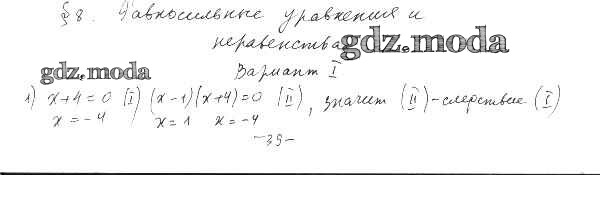 § 8. Равносильные уравнения и
неравенства gdz.moda
gdz.moda Вариант I
1) x+4=0 (I) (x-1)(x+4)=0 (II), значит (II)-следствие (I)
x=-4 x=1 x=-4
-39-